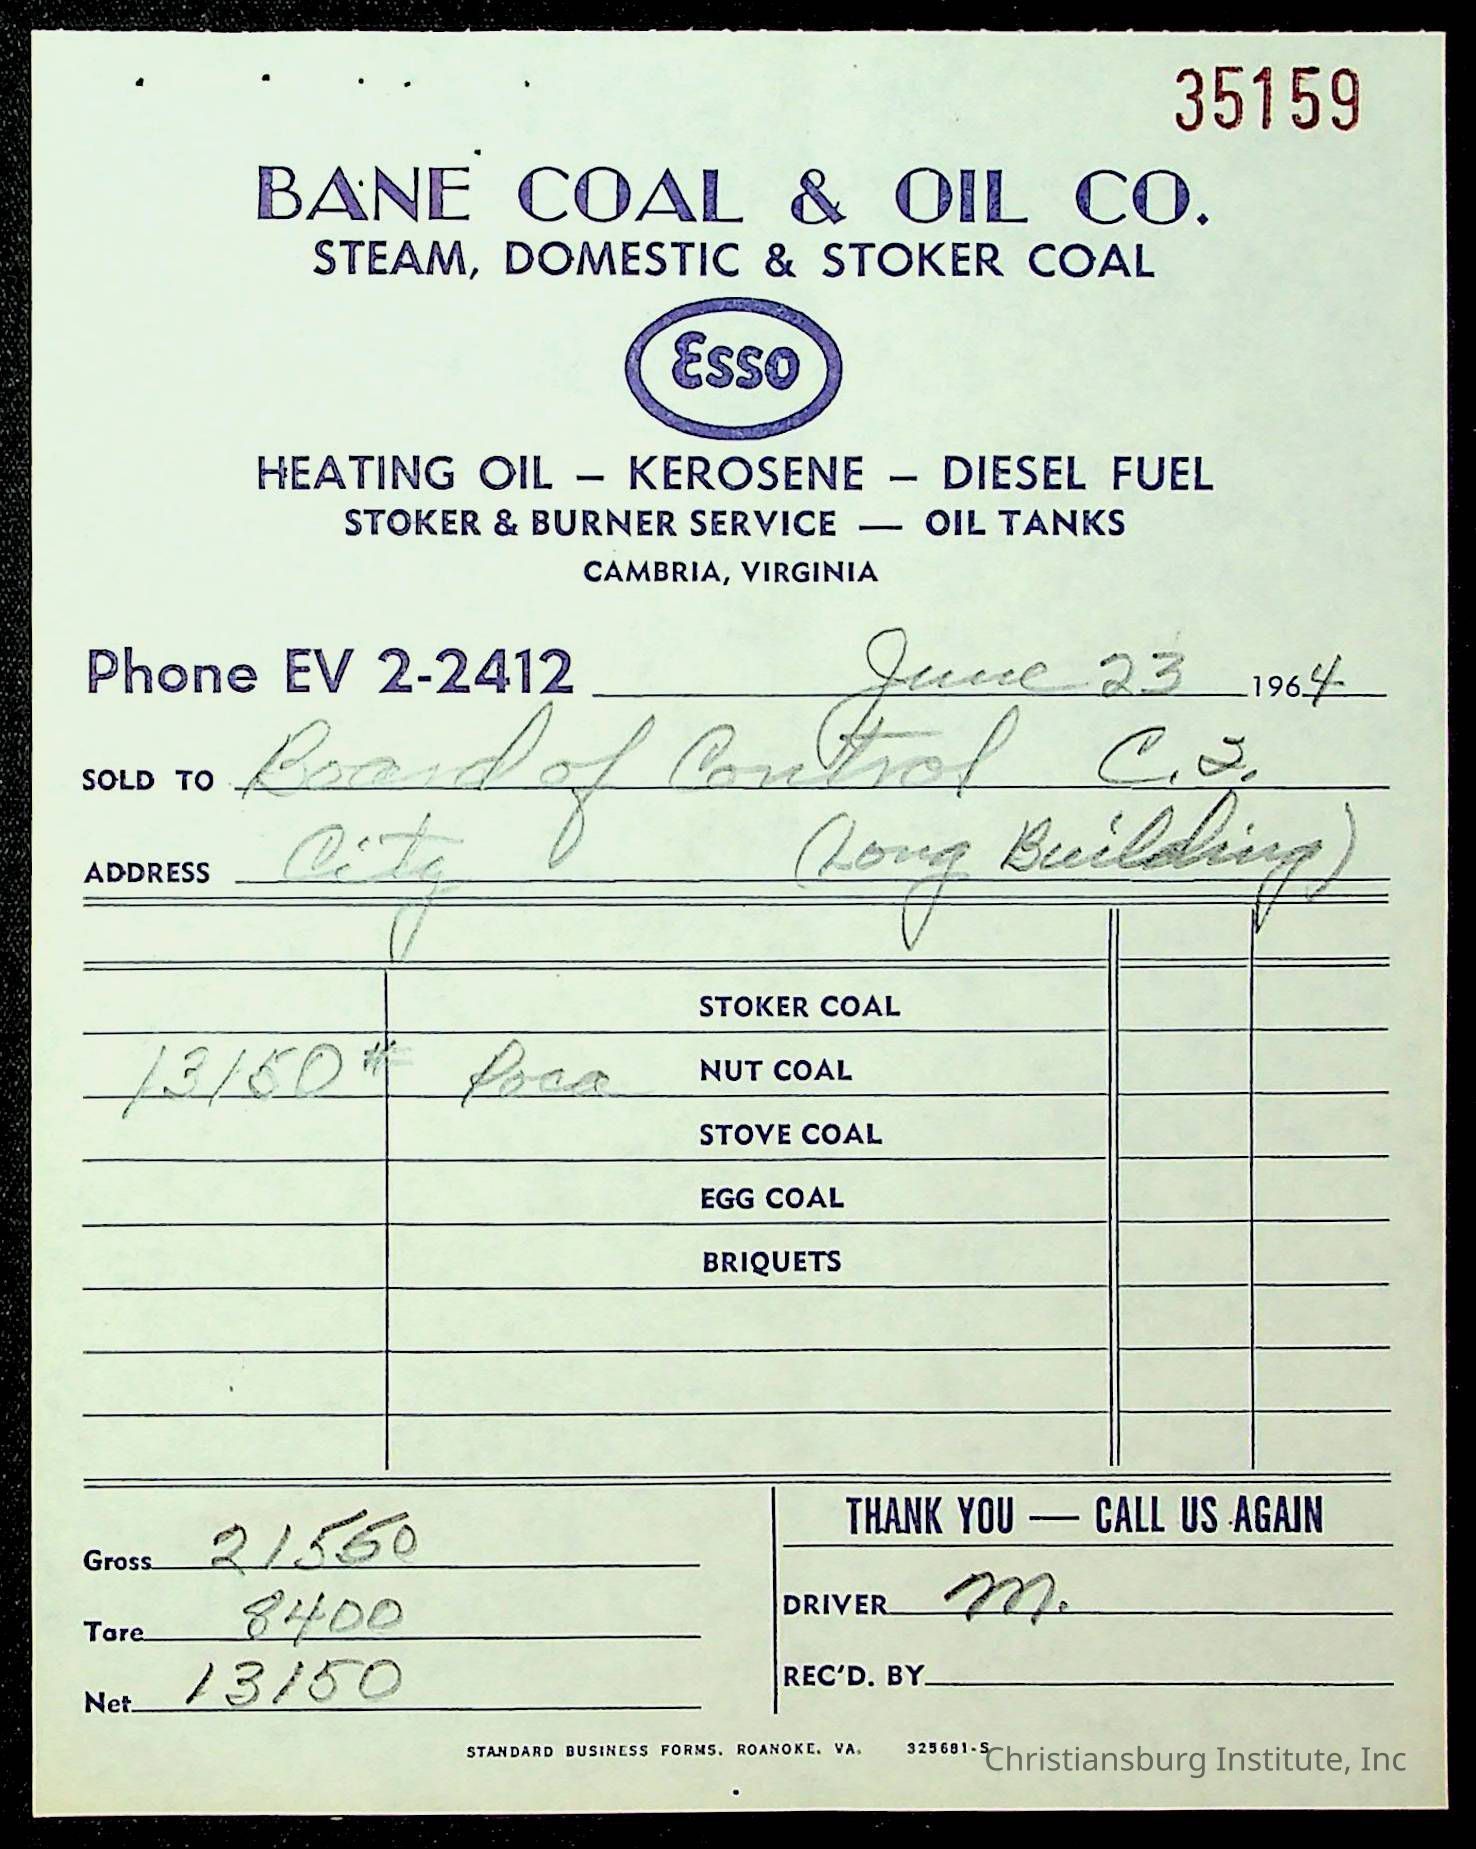 35159
BANE COAL & OIL CO.
STEAM, DOMESTIC & STOKER COAL
Esso
HEATING OIL – KEROSENE – DIESEL FUEL
STOKER & BURNER SERVICE — OIL TANKS
CAMBRIA, VIRGINIA
Phone EV 2-2412 June 23 1964
SOLD TO Board of Control C. I.
ADDRESS City (Long Building)
STOKER COAL
13150 # Poca NUT COAL
STOVE COAL
EGG COAL
BRIQUETS
THANK YOU — CALL US AGAIN
Gross 21550
Tare 8400
Net 13150
DRIVER M.
REC'D. BY
STANDARD BUSINESS FORMS. ROANOKE. VA. 325681-S
Christiansburg Institute, Inc